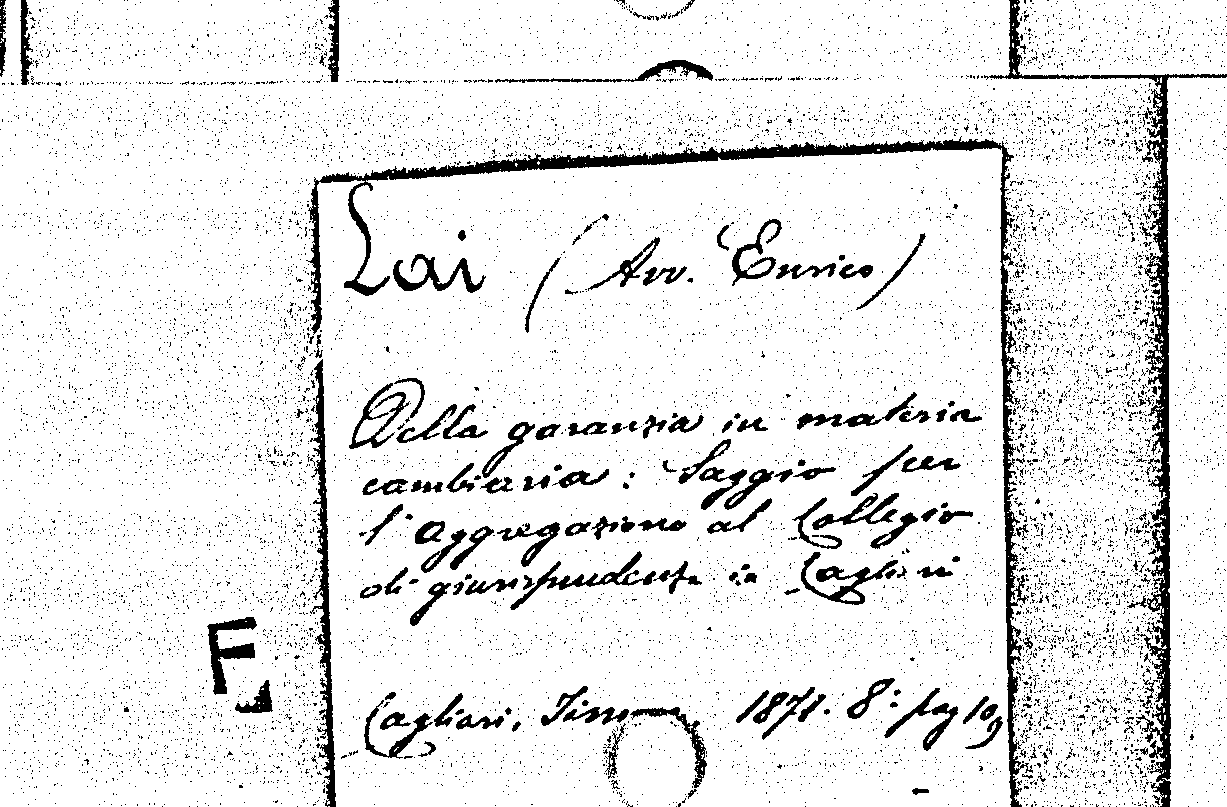 Lai (Avv. Enrico)
Della garanzia in materia
cambiaria: Saggio per
l'Aggregazione al Collegio
di giurisprudenza in Cagliari
Cagliari, 1871. 8: pag 109
F